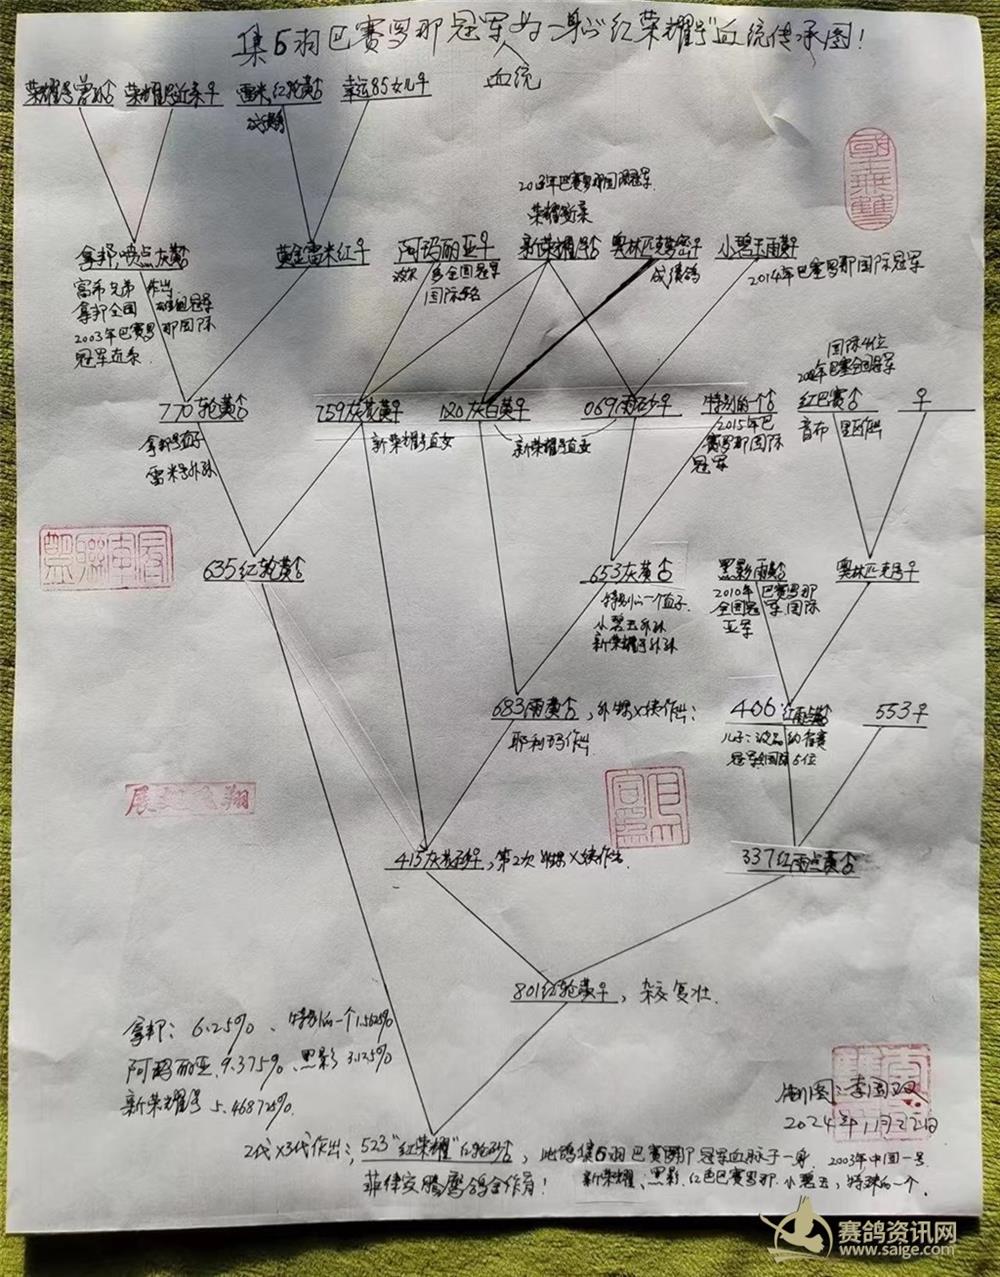 集6羽巴赛罗那冠军为一身"红荣耀号"血统传承图!
血统
荣耀号曾孙合 荣耀号近亲♀ 雷米,红轮黄合 幸运85女儿♀
成绩鸽
2013年巴赛罗那国际冠军
荣耀号近亲
拿邦,喷点灰黄合 黄金雷米红♀ 阿玛丽亚♀ 新荣耀号合 奥林匹克 ♀ 小碧玉雨黄♀
富弟兄弟 作出
拿邦全国 冠军
2003年巴赛罗那国际
冠军近亲.
波尔 多全国冠军
国际
成绩鸽
2014年巴赛罗那国际冠军
国际4位
年巴塞全国冠军
770轮黄合 759灰花黄♀ 120灰白黄♀ 069雨砂♀ 特别的一个合 红巴赛合 ♀
拿邦号直子
雷米号外孙
新荣耀号直女
新荣耀号直女
2015年巴
赛罗那国际
冠军
635红轮黄合 653灰黄合 黑影雨黄合 奥林匹克 ♀
特别的一个直子.
小碧玉外孙
新荣耀号外孙
2010年巴赛罗那
全国冠军,国际
亚军
683雨黄合,外甥×姨作出:
耶利玛作出
406红雨点黄合 553♀
儿子:波品的合赛
冠军,国际5位
415灰花砂♀,第2次 甥×姨作出. 337红雨点黄合
801红轮黄♀,杂交复壮.
拿邦:6.25%、特别的一个1.5625%
阿玛丽亚.9.375%、黑影3.125%
新荣耀号5.46875%.
制图:李国双
2024年11月22日
2代×3代作出:,523"红荣耀"红轮砂合,此鸽集6羽巴赛罗那冠军血脉于一身. 2003年中国一号.
菲律宾腾鹰鸽舍作育! 新荣耀、黑影.红色巴赛罗那.小碧玉,特殊的一个.
赛鸽资讯网
www.saige.com